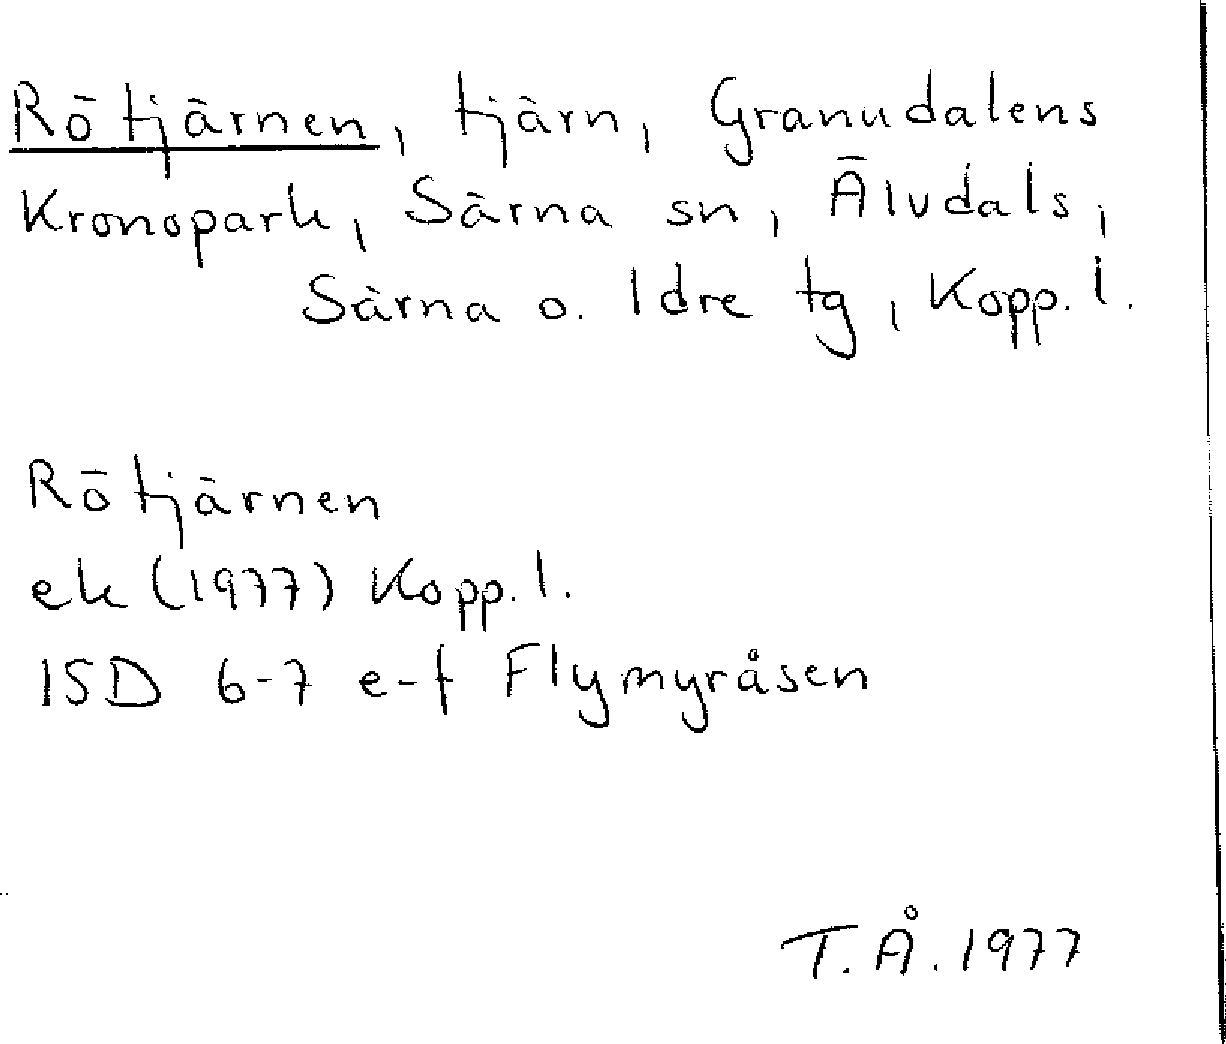 Rötjärnen, tjärn, Granudalens
Kronopark, Särna sn, Älvdals,
Särna o. Idre tg, Kopp. l.
Rötjärnen
ek (1977) Kopp. l.
15D 6-7 e-f Flymyråsen
T. Å. 1977